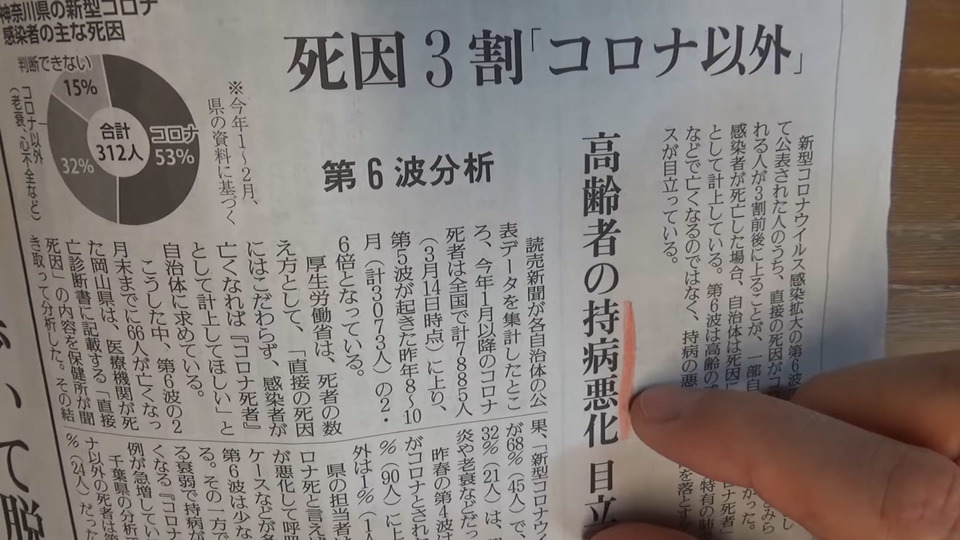 死因3割「コロナ以外」
第6波分析
高齢者の持病悪化 目立
神奈川県の新型コロナ
感染者の主な死因
判断できない
15%
コロナ以外
(老衰、心不全など)
32%
合計
312人
コロナ
53%
※今年1〜2月、
県の資料に基づく
新型コロナウイルス感染拡大の第6波
て公表された人のうち、直接の死因がコ
れる人が3割前後に上ることが、一部自
感染者が死亡した場合、自治体は死因に
として計上している。第6波は高齢の
などで亡くなるのではなく、持病の悪
スが目立っている。
読売新聞が各自治体の公
表データを集計したとこ
ろ、今年1月以降のコロナ
死者は全国で計7885人
(3月14日時点)に上り、
第5波が起きた昨年8〜10
月(計3073人)の2・
6倍となっている。
厚生労働省は、死者の数
え方として、「直接の死因
にはこだわらず、感染者が
亡くなれば『コロナ死者』
として計上してほしい」と
自治体に求めている。
こうした中、第6波の2
月末までに66人が亡くなっ
た岡山県は、医療機関が死
亡診断書に記載する「直接
死因」の内容を保健所が聞
き取って分析した。その結
果、「新型コロナウイ
が68%(45人)で、
32%(21人)は、
炎や老衰などだっ
昨春の第4波は
がコロナとされ
%(90人)に上
外は1%(1人
県の担当者は
ロナ死と言え
が悪化して呼
ケースなどが多
第6波は少な
る。その一方で
る衰弱で持病が
くなる『コロナ
例が急増してい
千葉県の分析で
ナ以外の死者は第
%(24人)だった
いて脱